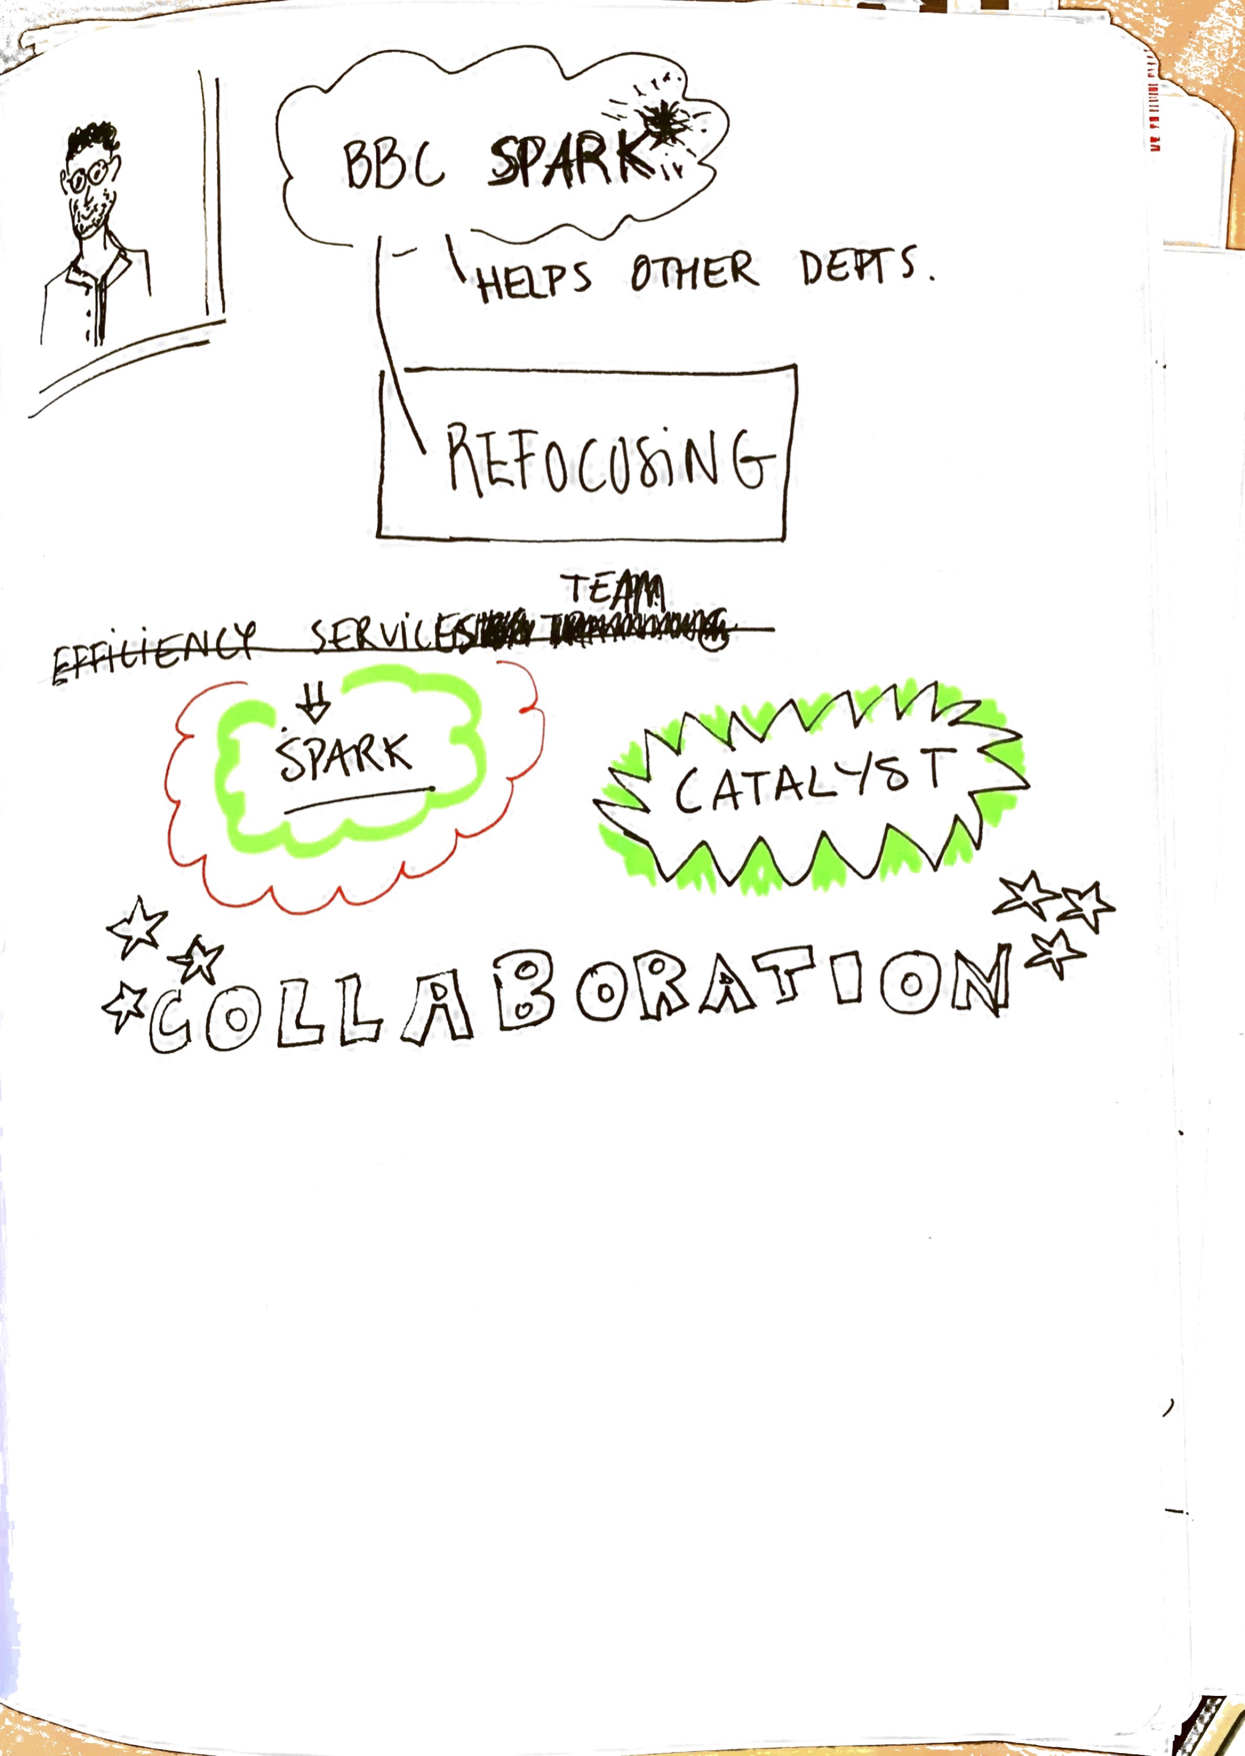 BBC SPARK*
HELPS OTHER DEPTS.
REFOCUSiNG
TEAM
EFFiCiENCY SERViCES
SPARK
CATALYST
COLLABORATION